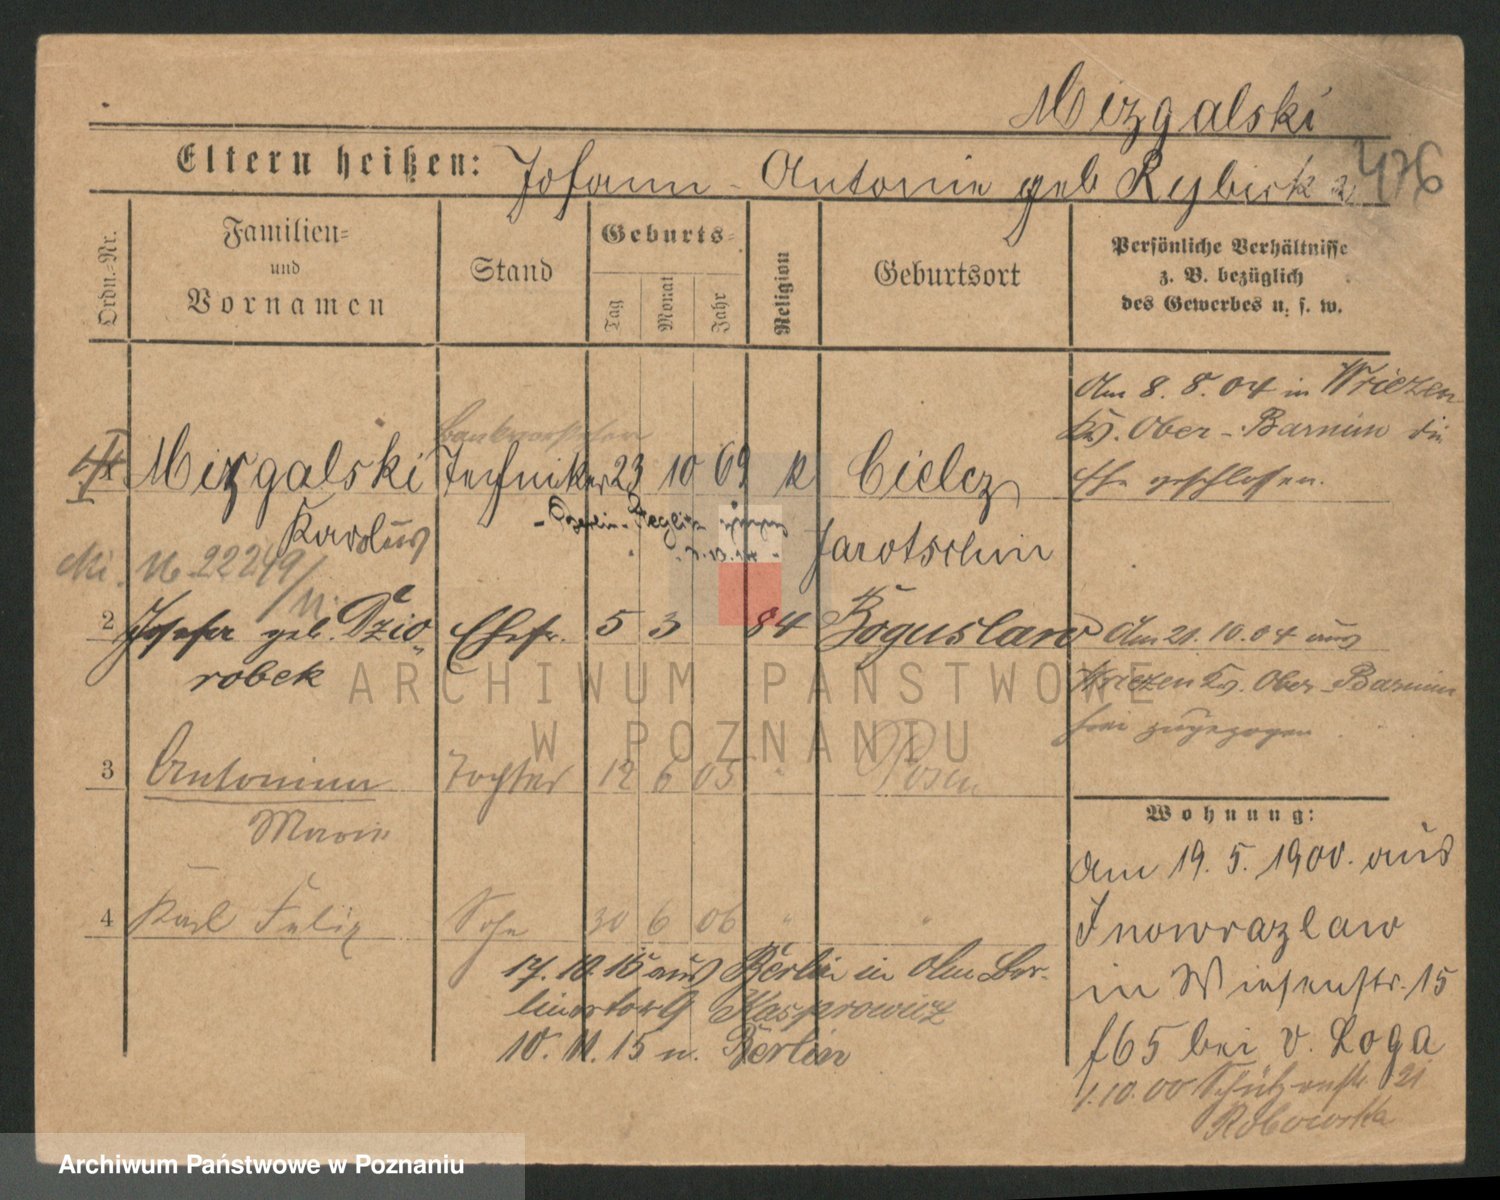 Mizgalski
Eltern heißen: Johann - Antonie geb Rybicka 476
Ordn.-Nr.
Familien-
und
Vornamen
Stand
Geburts-
Tag
Monat
Jahr
Religion
Geburtsort
Persönliche Verhältnisse
z. B. bezüglich
des Gewerbes u. s. w.
Am 8. 8. 04 in Wriezen
Kr. Ober-Barnim die
Ehe geschlossen.
1 Mizgalski Techniker 23 10 69 k Cielcz
Karolus Jarotschin
Berlin-
No 22249
2 Josefa geb. Dzio- Ehefr. 5 3 84 Boguslaw Am 21. 10. 04 aus
robek Wriezen Kr. Ober-Barnim
hier zugezogen
3 Antonina Tochter 12 6 05 " Posen
Marie
Wohnung:
Am 19. 5. 1900. aus
Inowrazlaw
in Wiesenstr. 15
bei v. Loga
1.10.00 Schützenstr. 21
4 Karl Felix Sohn 30 6 06 " "
17. 10. 15 aus Berlin in Am Ber-
linertor 9 Kasprowicz
10. 11. 15 n. Berlin
ARCHIWUM PAŃSTWOWE
W POZNANIU
Archiwum Państwowe w Poznaniu